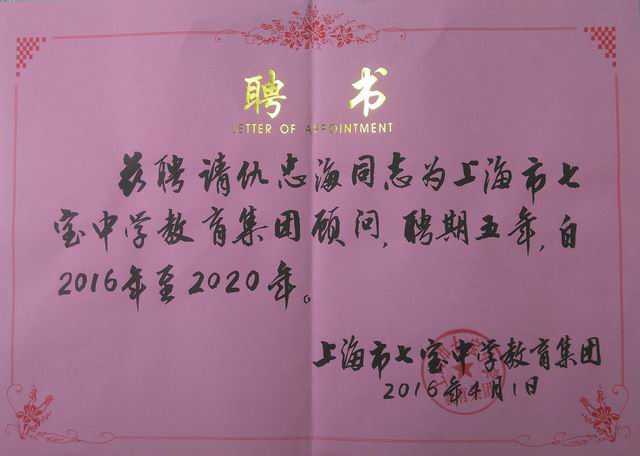 聘 书
LETTER OF APPOINTMENT
兹聘请仇忠海同志为上海市七
宝中学教育集团顾问,聘期五年,自
2016年至2020年。
上海市七宝中学教育集团
2016年4月1日